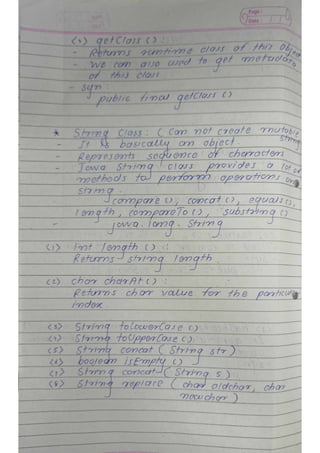 Page :
Date :
(4) getClass () :
- Returns runtime class of this Object
- we can also used to get metadata
of this class
- syn :
public final getClass ()
* String Class : ( Can not create mutable string
- It is basically an object
- Represents sequence of characters
- Java String class provides a lot of
methods to perform operations on
string.
compare (), concat (), equals (),
length, compareTo (), substring ()
- java. lang. String
(1) Int length () :
Returns string length
(2) char charAt () :
Returns char value for the particular
index
(3) String toLowerCase ()
(4) String toUpperCase ()
(5) String concat ( String str )
(6) boolean isEmpty ()
(7) String concat ( String s )
(8) String replace ( char oldchar, char
newchar )